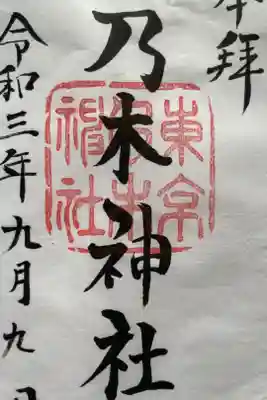 奉拝
乃木神社
東京
乃木
神社
令和三年九月九日